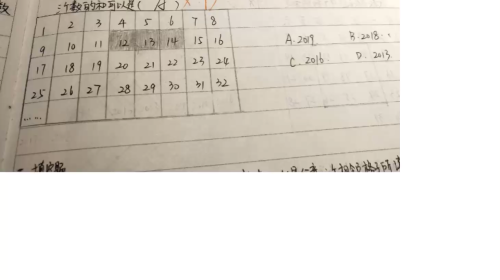 数
三个数的和可以是(
1 2 3 4 5 6 7 8
A.2019 B.2018
9 10 11 12 13 14 15 16
17 18 19 20 21 22 23 24
C.2016 D.2013
25 26 27 28 29 30 31 32
……
填空题